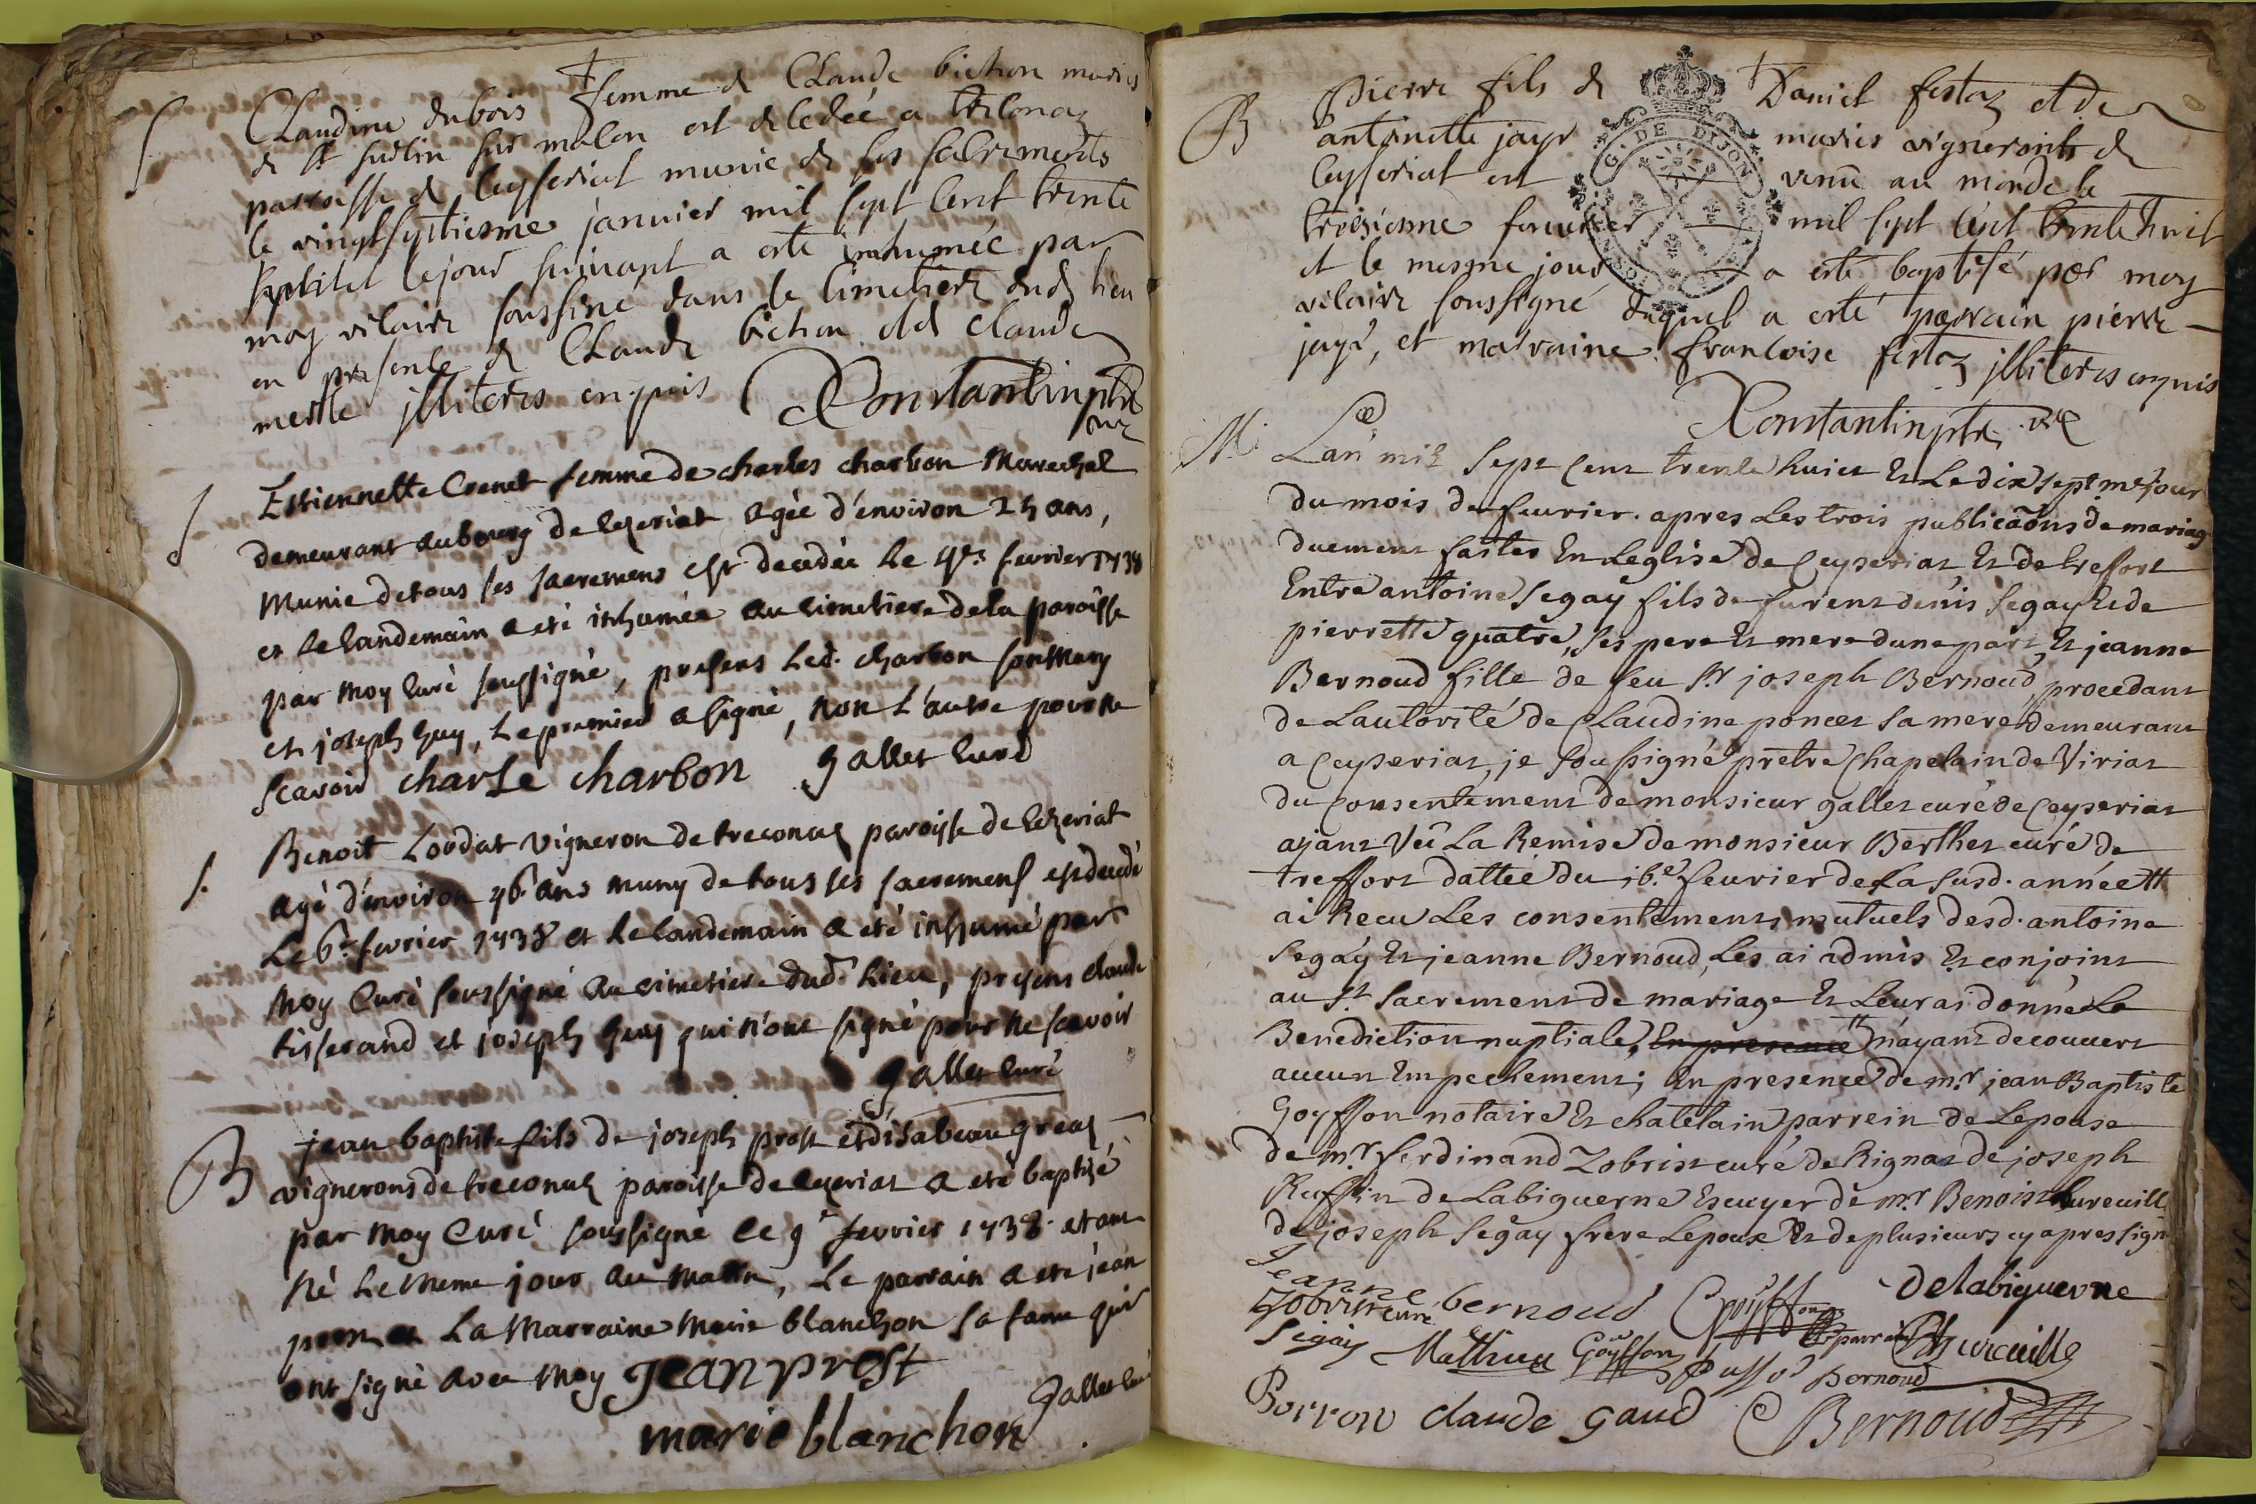 S
Claudine dubois femme de Claude bichon mariés
de st sudlin sur malon est decedée a treconaz
parroisse de Ceyseriat munie de ses sacrements
le vingtseptiesme janvier mil sept cent trente
huit et le jour suivant a esté inhumée par
moy vicaire soussiné dans le cimetiere dud lieu
en presence de Claude bichon et de claude
merle jlliteres enquis Constantin ptre
vic
S
Estiennette Crenet femme de charles charbon Marechal
demeurant au bourg de Cezeriat agée d'environ 25 ans,
Munie de tous ses sacremens est decedée le 4e fevrier 1738
et le landemain a eté inhumée au cimetiere de la paroisse
par moy Curé soussigné, presens led. charbon son mary
et joseph guy, Le premier a signé, non l'autre pour ne
scavoir charle charbon gallet curé
S.
Benoit Loudat vigneron de treconaz paroisse de Cezeriat
agé d'environ 46 ans muny de tous ses sacremens est decedé
Le 6e fevrier 1738 et le landemain a eté inhumé par
Moy Curé soussigné au cimetiere dud. lieu, presens claude
tisserand et joseph guy qui n'ont signé pour ne scavoir
gallet curé
B
jean baptiste fils de joseph prost et disabeau greaz
vignerons de treconaz paroisse de Cezeriat a eté baptizé
par moy Curé soussigné le 9e fevrier 1738. etant
Né le meme jour au matin, Le parrain a eté jean
prost et La Marraine Marie blanchon sa fame qui
ont signé avec moy jean prost
gallet curé
marie blanchon
G. DE DIJON
B
Pierre fils de Daniel festaz et de
antoinette jayr mariés vignerons de
Ceyseriat est venu au monde le
troisiesme fevrier mil sept cent trente huit
et le mesme jour a esté baptisé par moy
vicaire soussigné duquel a esté parrain pierre
jayr, et marraine francoise festaz jlliteres enquis
Constantin ptre vic
M.
L'an mil sept cent trente huict et Le dix septme jour
du mois de feuvrier. apres Les trois publicãons de mariag
duement faites En Leglise de Ceyseriat Et de treffort
Entre antoine Segay fils de furent denis Segay Et de
pierrette quatre, ses pere Et mere dune part, Et jeanne
Bernoud fille de feu Sr joseph Bernoud, procedant
de Lautorité de Claudine poncet sa mere demeurant
a Ceyseriat, je soussigné prêtre Chapelain de Viriat
du Consentement de monsieur gallet curé de Ceyseriat
ayant Vû La Remise de monsieur Berthet curé de
treffort dattée du 16.e feuvrier de La susd. année
ai Recu Les consentements mutuels desd. antoine
Segay Et jeanne Bernoud, Les ai admis Et conjoint
au St. Sacrement de mariage Et Leur ai donné La
Benediction nuptiale, En presence n'ayant decouvert
aucun Empechement; En presence de mr jean Baptiste
Goyffon notaire Et chatelain parrein de Lepouse
de mr ferdinand Zobrist curé de Rignat de joseph
Ruffin de Labiguerne Escuyer de mr Benoist Cureuill
de joseph Segay frere Lepoux Et de plusieurs cy apres sign
Jeanne bernoud Goyffon parrein delabiguerne
Zobrist curé
Segay Matthieu Goyffon Bernoud Cureuille
Borron claude gaud Bernoud